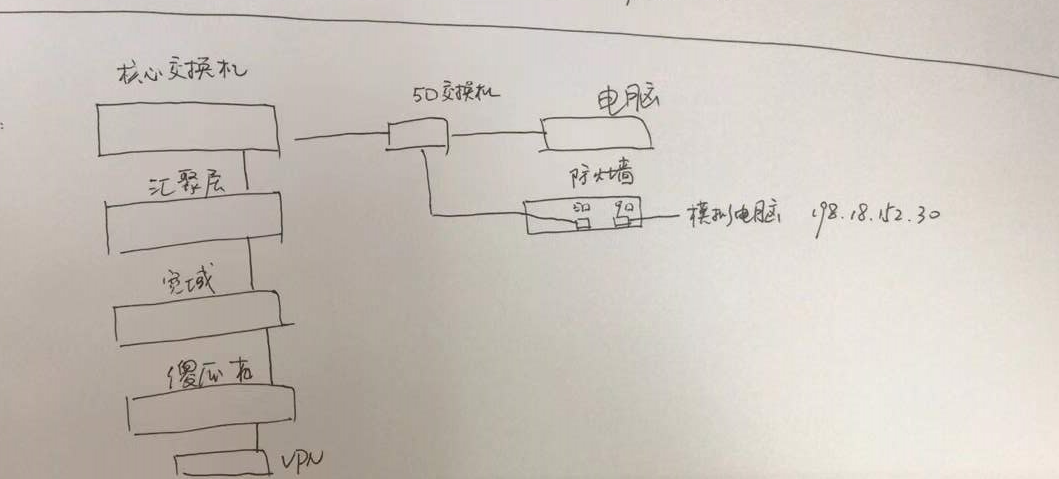 核心交换机
汇聚层
宽域
傻瓜
VPN
50交换机
电脑
防火墙
模拟电脑 198.18.152.30